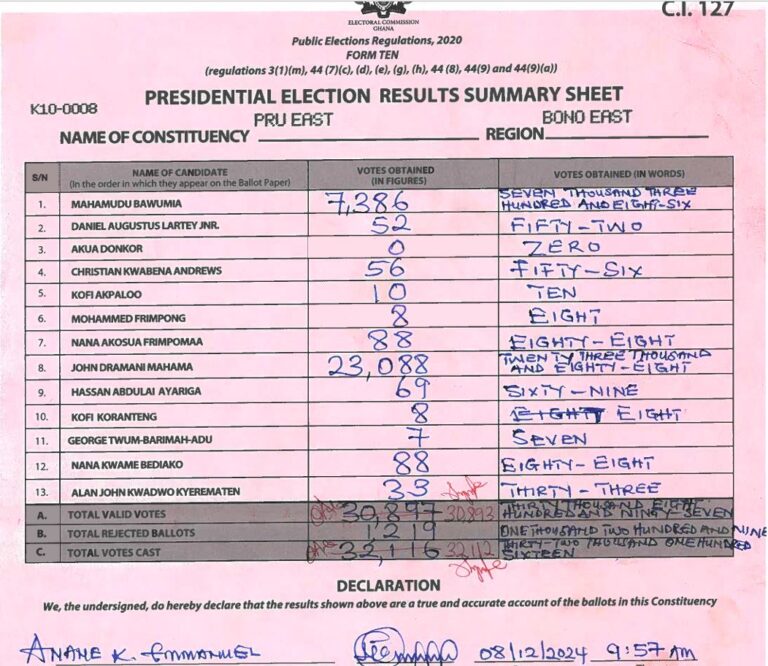 C.I. 127
ELECTORAL COMMISSION
GHANA
Public Elections Regulations, 2020
FORM TEN
(regulations 3(1)(m), 44 (7)(c), (d), (e), (g), (h), 44 (8), 44(9) and 44(9)(a))
K10-0008
PRESIDENTIAL ELECTION RESULTS SUMMARY SHEET
NAME OF CONSTITUENCY PRU EAST REGION BONO EAST
S/N NAME OF CANDIDATE (In the order in which they appear on the Ballot Paper) VOTES OBTAINED (IN FIGURES) VOTES OBTAINED (IN WORDS)
1. MAHAMUDU BAWUMIA 7,386 SEVEN THOUSAND THREE HUNDRED AND EIGHT-SIX
2. DANIEL AUGUSTUS LARTEY JNR. 52 FIFTY-TWO
3. AKUA DONKOR 0 ZERO
4. CHRISTIAN KWABENA ANDREWS 56 FIFTY-SIX
5. KOFI AKPALOO 10 TEN
6. MOHAMMED FRIMPONG 8 EIGHT
7. NANA AKOSUA FRIMPOMAA 88 EIGHTY-EIGHT
8. JOHN DRAMANI MAHAMA 23,088 TWENTY THREE THOUSAND AND EIGHTY-EIGHT
9. HASSAN ABDULAI AYARIGA 69 SIXTY-NINE
10. KOFI KORANTENG 8 EIGHTY EIGHT
11. GEORGE TWUM-BARIMAH-ADU 7 SEVEN
12. NANA KWAME BEDIAKO 88 EIGHTY-EIGHT
13. ALAN JOHN KWADWO KYEREMATEN 33 THIRTY-THREE
A. TOTAL VALID VOTES 30,897 30,893 THIRTY THOUSAND EIGHT HUNDRED AND NINTY-SEVEN
B. TOTAL REJECTED BALLOTS 1,219 ONE THOUSAND TWO HUNDRED AND NINE
C. TOTAL VOTES CAST 32,116 32,112 THIRTY-TWO THOUSAND ONE HUNDRED SIXTEEN
DECLARATION
We, the undersigned, do hereby declare that the results shown above are a true and accurate account of the ballots in this Constituency
ANANE K. EMMANUEL 08/12/2024 9:57 AM